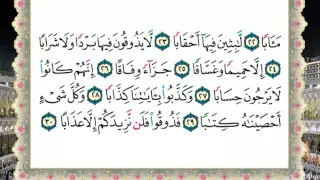 مَـَٔابًا ٢٢ لَّٰبِثِينَ فِيهَآ أَحْقَابًا ٢٣ لَّا يَذُوقُونَ فِيهَا بَرْدًا وَلَا شَرَابًا
٢٤ إِلَّا حَمِيمًا وَغَسَّاقًا ٢٥ جَزَآءً وِفَاقًا ٢٦ إِنَّهُمْ كَانُوا۟
لَا يَرْجُونَ حِسَابًا ٢٧ وَكَذَّبُوا۟ بِـَٔايَٰتِنَا كِذَّابًا ٢٨ وَكُلَّ شَىْءٍ
أَحْصَيْنَٰهُ كِتَٰبًا ٢٩ فَذُوقُوا۟ فَلَن نَّزِيدَكُمْ إِلَّا عَذَابًا ٣٠